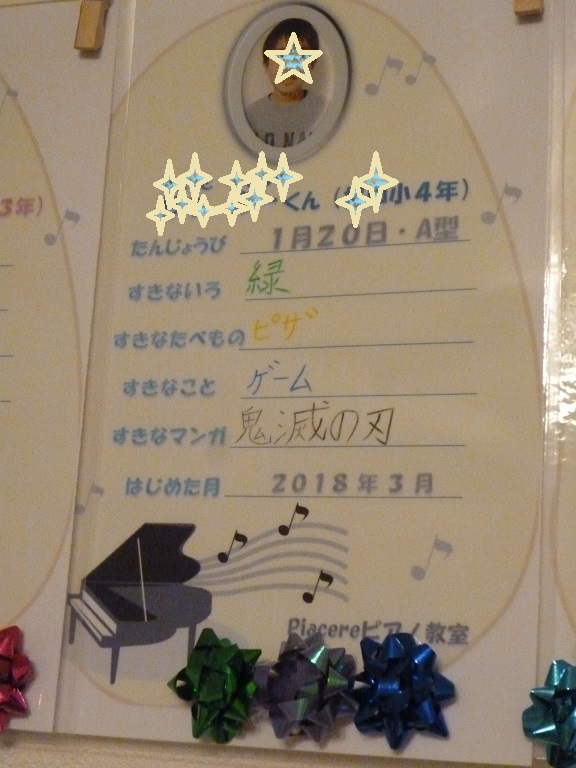 くん（ 小4年）
たんじょうび 1月20日・A型
すきないろ 緑
すきなたべもの ピザ
すきなこと ゲーム
すきなマンガ 鬼滅の刃
はじめた月 2018年3月
Piacereピアノ教室
3年）